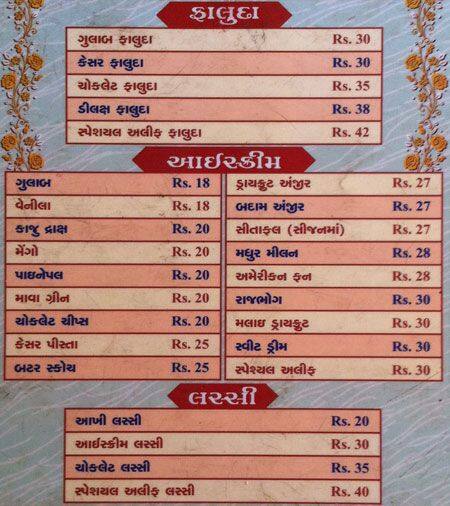 ફાલુદા
ગુલાબ ફાલુદા Rs. 30
કેસર ફાલુદા Rs. 30
ચોકલેટ ફાલુદા Rs. 35
ડીલક્ષ ફાલુદા Rs. 38
સ્પેશયલ અલીફ ફાલુદા Rs. 42
આઈસ્ક્રીમ
ગુલાબ Rs. 18
વેનીલા Rs. 18
કાજુ દ્રાક્ષ Rs. 20
મેંગો Rs. 20
પાઇનેપલ Rs. 20
માવા ગ્રીન Rs. 20
ચોકલેટ ચીપ્સ Rs. 20
કેસર પીસ્તા Rs. 25
બટર સ્કોચ Rs. 25
ડ્રાયફ્રુટ અંજીર Rs. 27
બદામ અંજીર Rs. 27
સીતાફલ (સીજનમાં) Rs. 27
મધુર મીલન Rs. 28
અમેરીકન ફન Rs. 28
રાજભોગ Rs. 30
મલાઇ ડ્રાયફ્રુટ Rs. 30
સ્વીટ ડ્રીમ Rs. 30
સ્પેશ્યલ અલીફ Rs. 30
લસ્સી
આખી લસ્સી Rs. 20
આઈસ્ક્રીમ લસ્સી Rs. 30
ચોકલેટ લસ્સી Rs. 35
સ્પેશયલ અલીફ લસ્સી Rs. 40